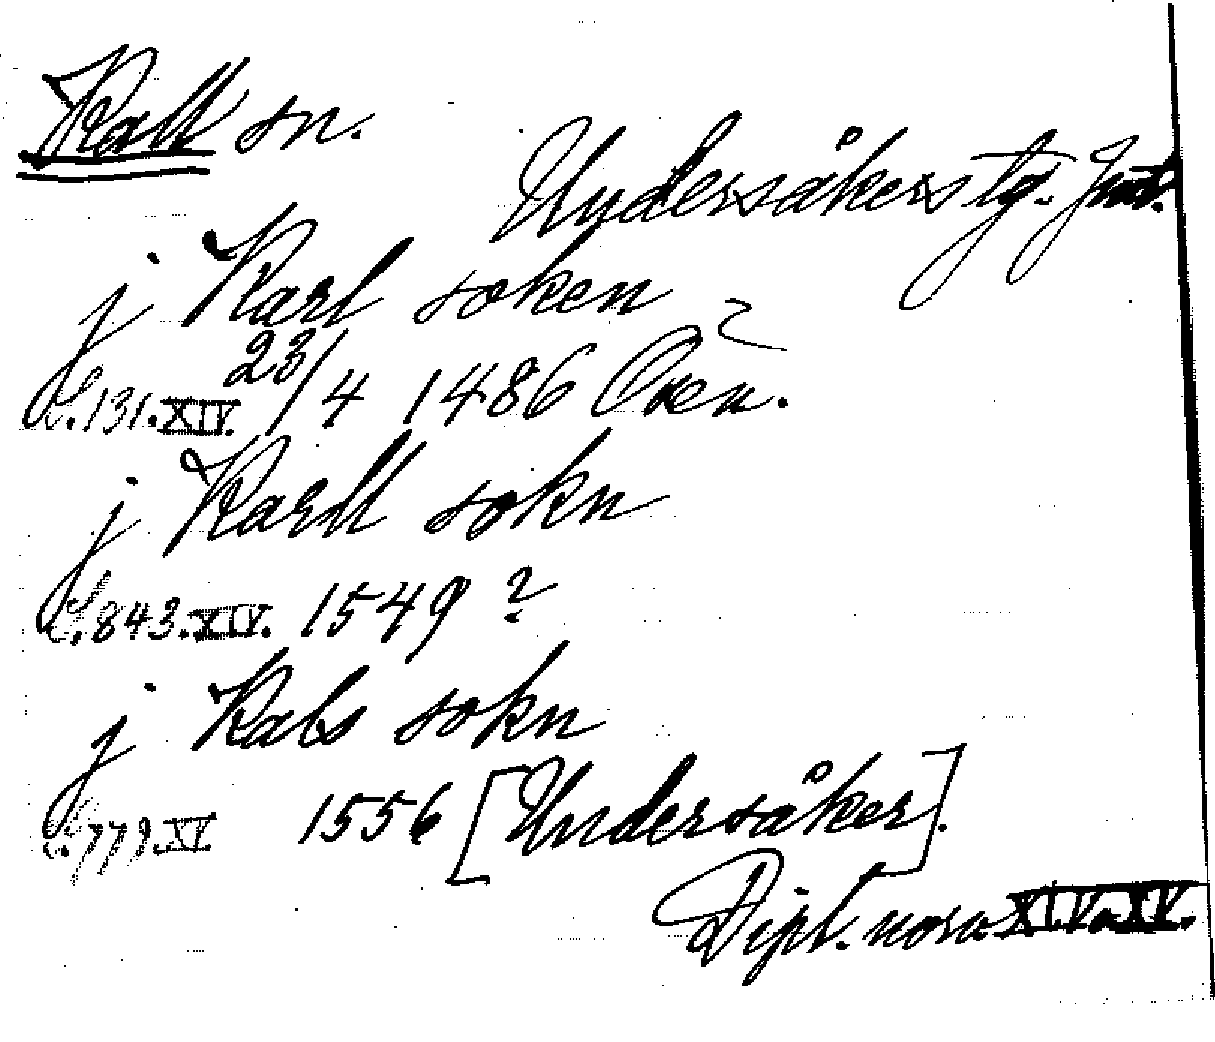 Kall sn.
Undersåkers tg. Jmt.
j Karl soken
S. 131. XIV. 23/4 1486 Oren.
j Karll sokn
S. 843. XIV. 1549 ?
j Kals sokn
S. 779. XV 1556 [Undersåker].
Dipl. norv. XIV o XV.